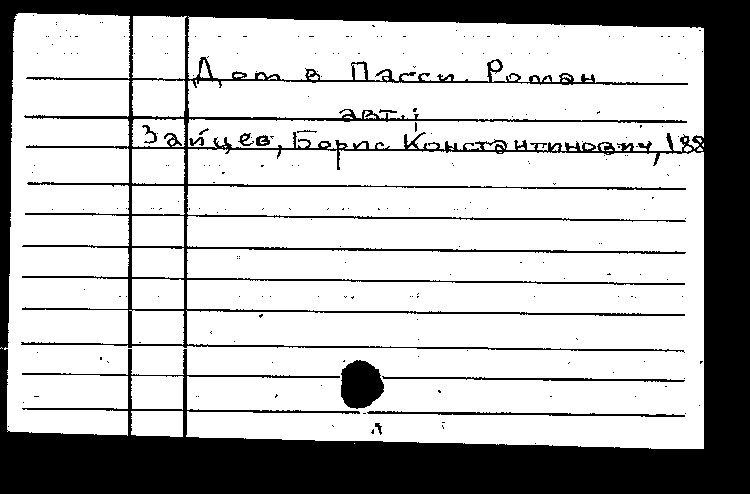 Дом в Пасси. Роман
авт.:
Зайцев, Борис Константинович, 188